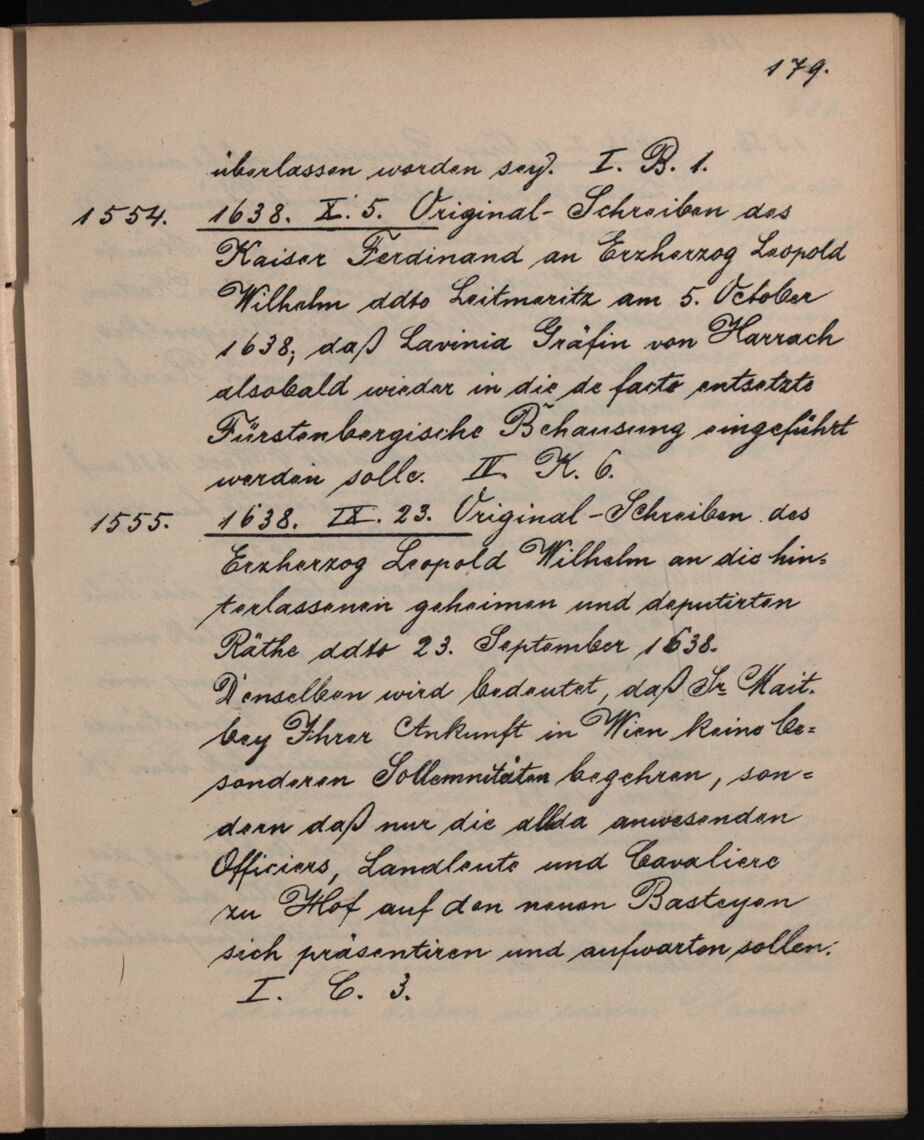 179.
überlassen worden sey. I. B. 1.
1554. 1638. X. 5. Original-Schreiben des
Kaiser Ferdinand an Erzherzog Leopold
Wilhelm ddto Leitmeritz am 5. October
1638, daß Lavinia Gräfin von Harrach
alsobald wieder in die de facto entsetzte
Fürstenbergische Behausung eingeführt
werden solle. II. K. 6.
1555. 1638. IX. 23. Original-Schreiben des
Erzherzog Leopold Wilhelm an die hin-
terlassenen geheimen und deputirten
Räthe ddto 23. September 1638.
Denselben wird bedeutet, daß Sr. Mait.
bey Ihrer Ankunft in Wien keine be-
sonderen Sollemnitäten begehren, son-
dern daß nur die allda anwesenden
Officiers, Landleute und Cavaliere
zu Hof auf den neuen Basteyen
sich präsentiren und aufwarten sollen.
I. C. 3.